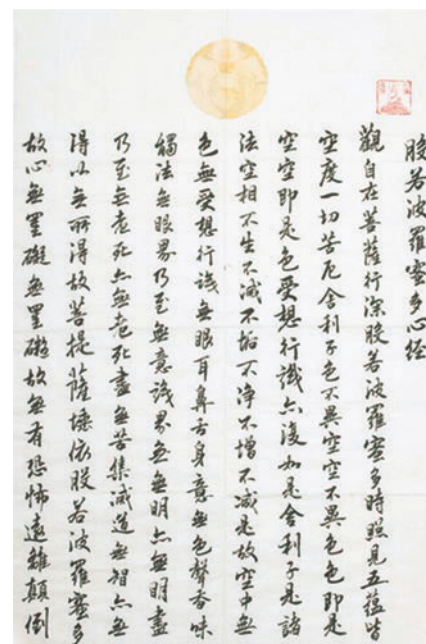 般若波羅蜜多心经
觀自在菩薩行深般若波羅蜜多時照見五蕴皆
空度一切苦厄舍利子色不異空空不異色色即是
空空即是色受想行識亦復如是舍利子是諸
法空相不生不滅不垢不淨不增不減是故空中無
色無受想行識無眼耳鼻舌身意無色聲香味
觸法無眼界乃至無意識界無無明亦無明盡
乃至無老死亦無老死盡無苦集滅道無智亦無
得以無所得故菩提薩埵依般若波羅蜜多
故心無罣礙無罣礙故無有恐怖遠離顛倒